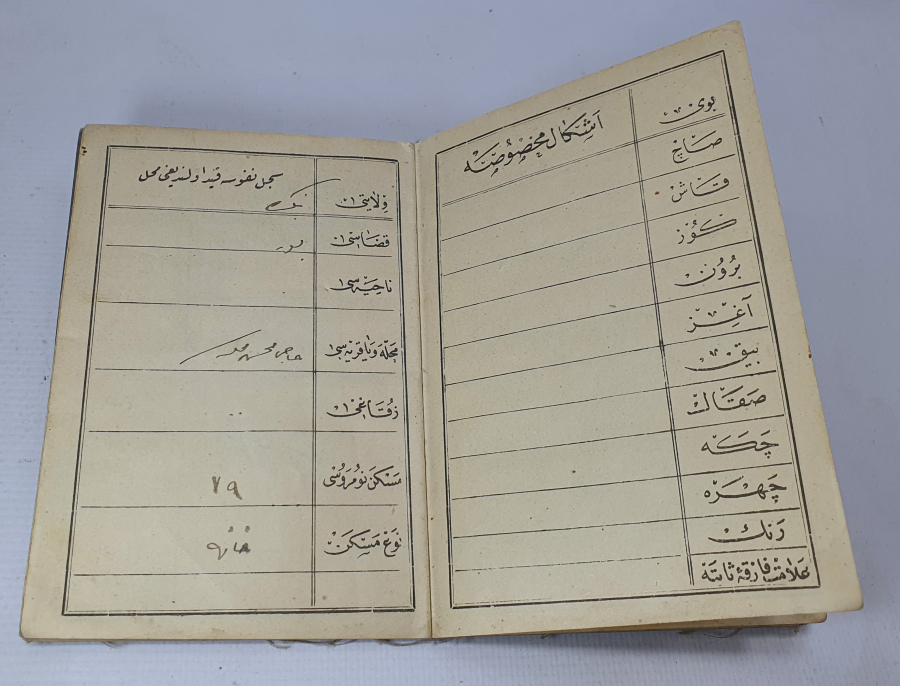 اشكال مخصوصه
بوی
صاچ
قاش
كوز
برون
آغز
بيق
صقال
چكه
چهره
رنك
علامت فارقۀ ثابته
سجل نفوسه قيد اولنديغی محل
ولايتی
قضاسی
ناحيه سی
محله ويا قريه سی
حاجی محسن محله
زقاغی
مسكن نومروسی
٧٩
نوع مسكن
خانه